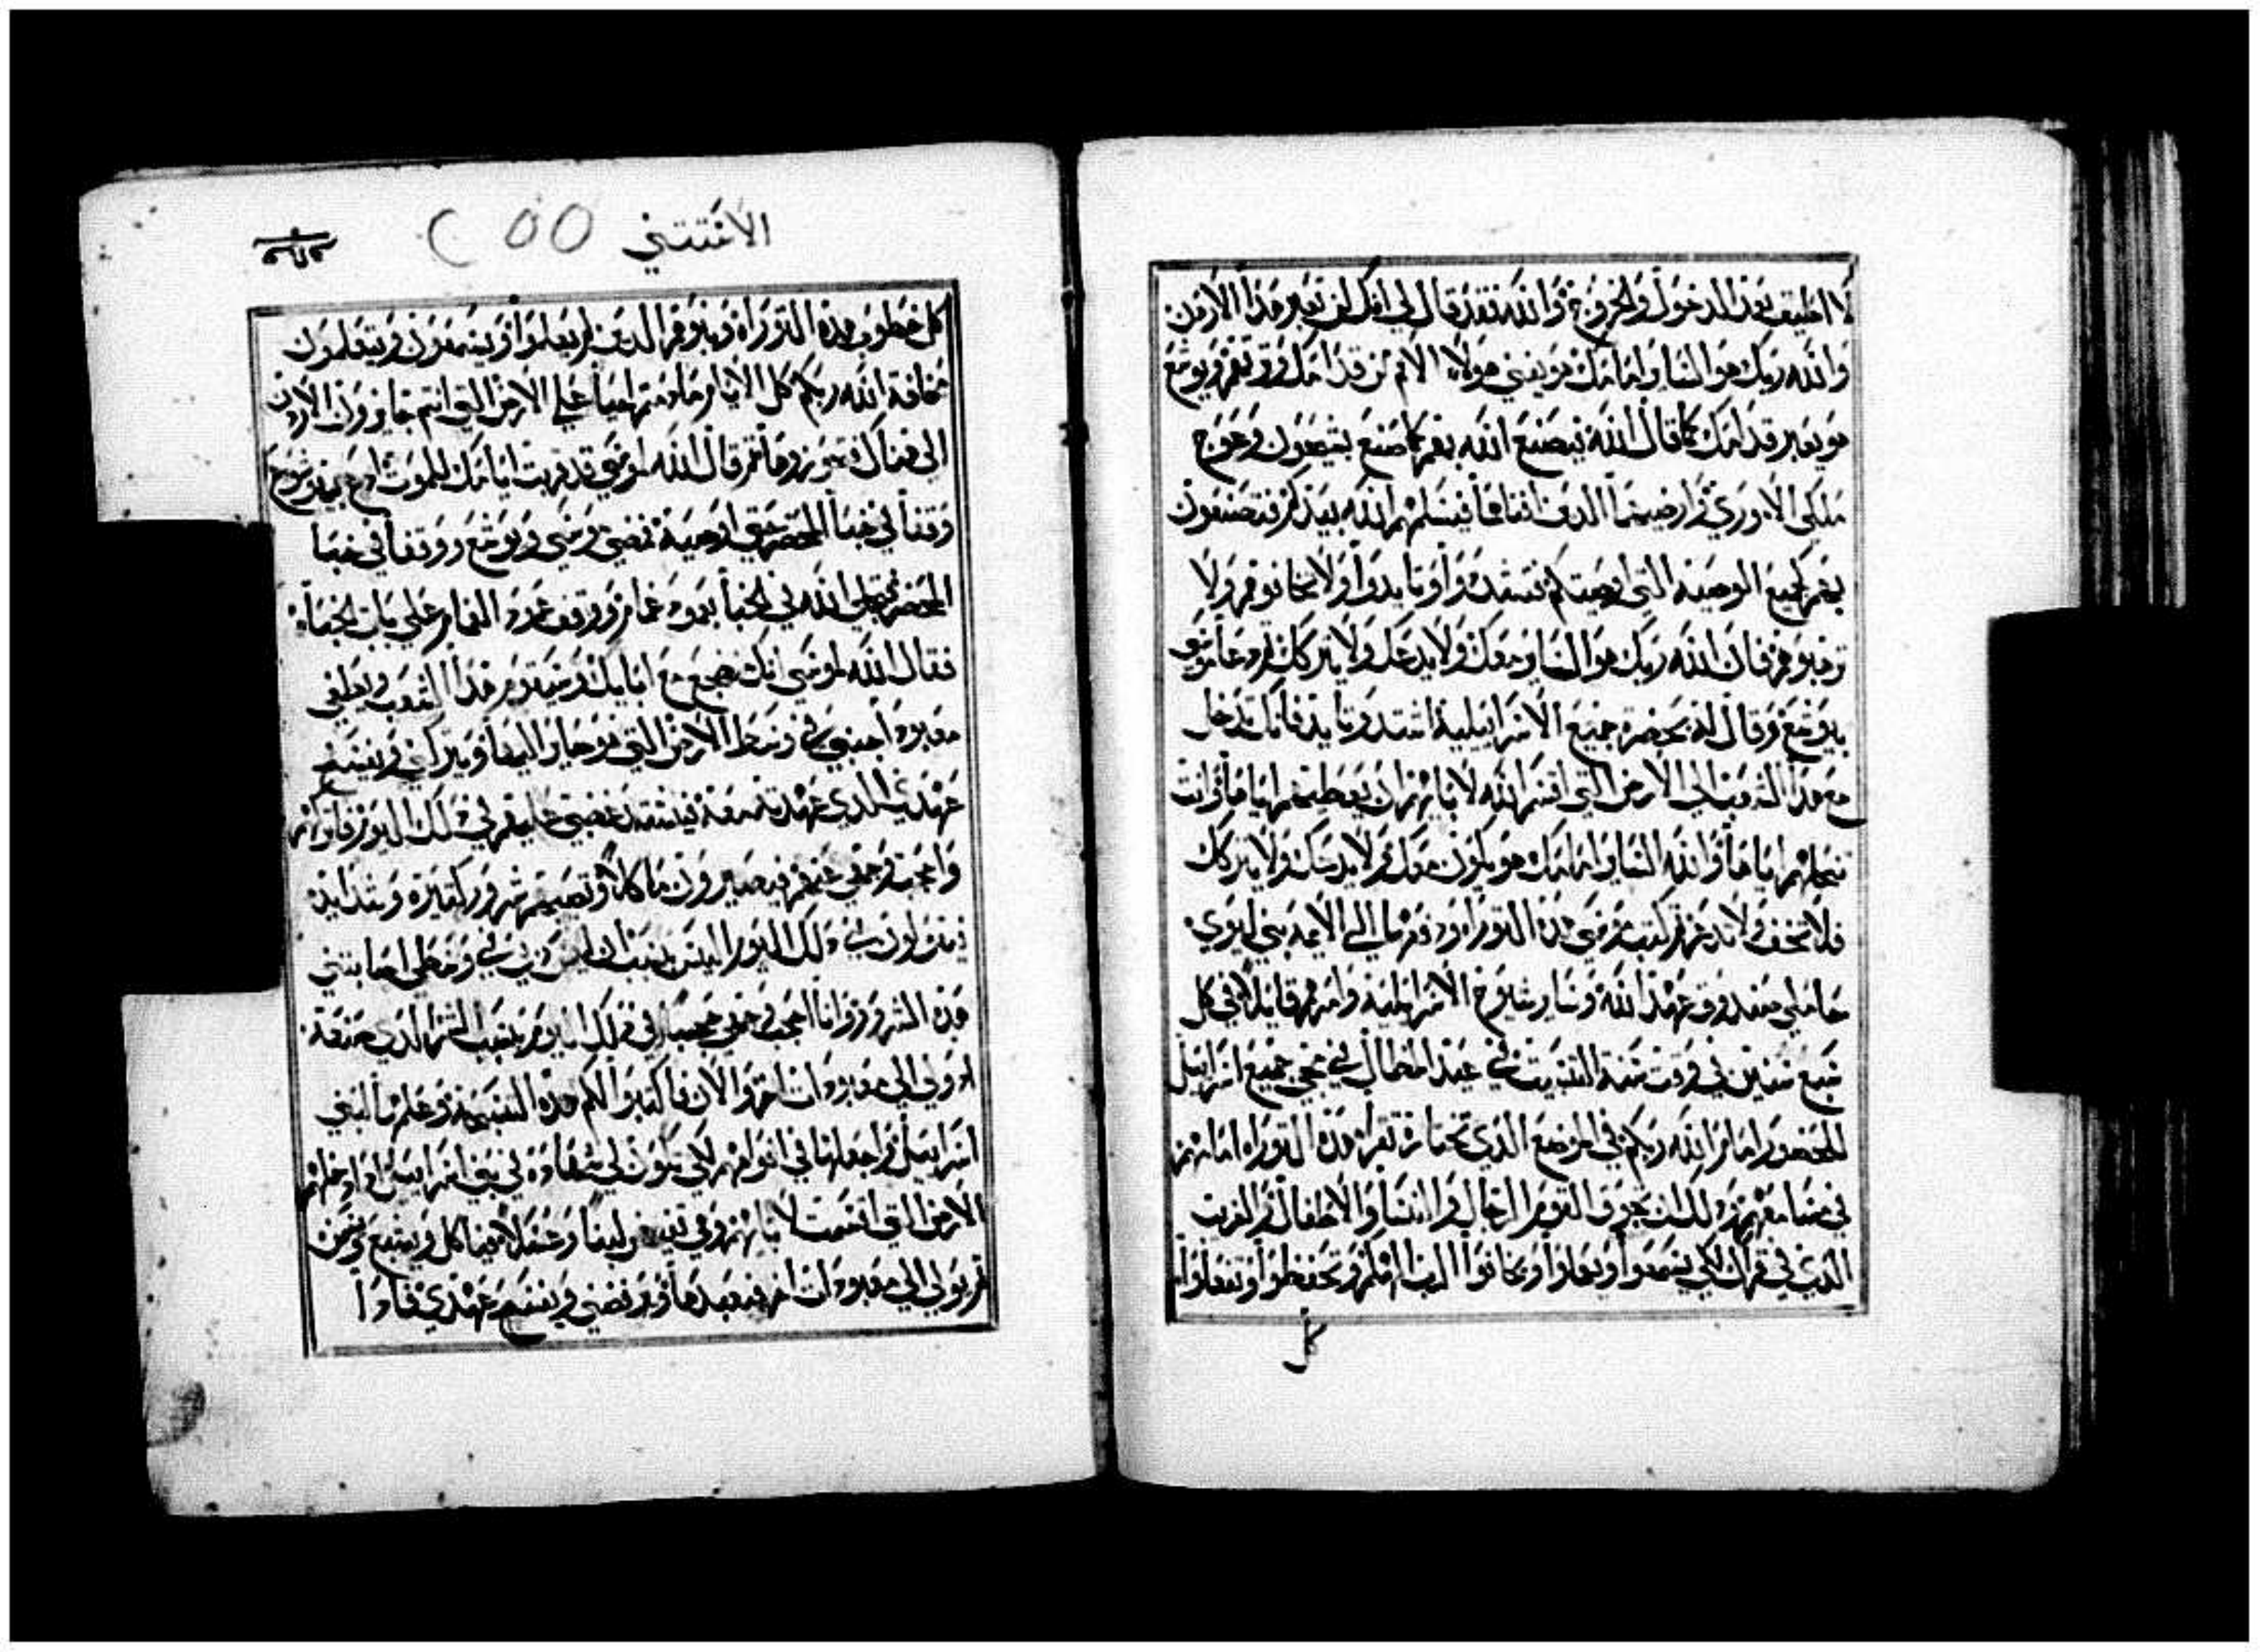 لا اطيق بعد الدخول والخروج والله فقد قال لي انك لن تعبر هذا الاردن
والله ربك هو السا وامامك هو يفني هولاء الامم من قدامك وترثهم ويوشع
هو يعبر قدامك كما قال الله فيصنع الله بهم كما صنع بسيحون وعوج
ملكي الاموري وارضيهما الذين افناهما فيسلمهم الله بيدكم فتصنعون
بهم كجميع الوصية التي اوصيتكم فتشددوا وتايدوا ولا تخافوهم ولا
ترهبوهم فان الله ربك هو الساير معك ولا يدعك ولا يتركك ثم دعا موسى
بيوشع وقال له بحضرة جميع الاسرايلية اشتد وتايد فانك تدخل
مع هذا الشعب الى الارض التي اقسم الله لابايهم ان يعطيهم اياها وانت
تنحلهم اياها والله الساير امامك هو يكون معك ولا يدعك ولا يتركك
فلا تخف ولا تذعر ثم كتب موسى هذه التوراه ودفعها الى الايمه بني ليوي
حاملي صندوق عهد الله وساير شيوخ الاسرايلية وامرهم قايلا في كل
سبع سنين في وقت سنة التسييب في عيد المظال في مجي جميع اسرايل
للحضور امام الله ربكم في الموضع الذي تختاره تقرا هذه التوراه امامهم
في مسامعهم وذلك ان يجوق القوم الرجال والنسا والاطفال والغريب
الذي في قراك لكي يسمعوا ويعلموا ويخافوا الله ربكم وتحفظوا وتعملوا
كل
الاثنتني ٢٥٥
كل خطوب هذه التوراه وبنوهم الذين لم يعلموا ويسمعون ويتعلمون
مخافة الله ربكم كل الايام ما دمتم احيا على الارض التي انتم جايزون الاردن
الى هناك تحوزوها ثم قال الله لموسى قد قربت ايامك للموت ادع بيوشع
وقفا في خبا المحضر حتى اوصيه فمضى موسى ويوشع ووقفا في خبا
المحضر فتجلى الله في الخبا بعمود غمام ووقف عمود الغمام على باب الخبا
فقال الله لموسى انك مضجع مع ابايك وسيقوم هذا الشعب ويطغى
معبود اجنبي في وسط الارض التي هو جايز اليها ويتركني ويفسخ
عهدي الذي عهدته معه فيشتد غضبي عليهم في ذلك اليوم فاتركهم
واحجب رحمتي عنهم فيصيرون ماكلا وتصيبهم شرور كثيرة وشدايد
فيقولون في ذلك اليوم اليس بسبب ان ليس ربي في وسطي اصابتني
هذه الشرور وانا احجب رحمتي حجبا في ذلك اليوم بسبب الشر الذي صنعه
اذ ولي الى معبودات اخر والان فاكتبوا لكم هذه التسبيحة وعلمها لبني
اسرايل واجعلها في افواههم لكي تكون لي شهادة في بني اسرايل اذا ادخلهم
الارض التي اقسمت لابايهم وهي تفيض لبنا وعسلا فياكل ويشبع ويسمن
ثم يولي الى معبودات اخر فيعبدها ويرفضني ويفسخ عهدي فاذا